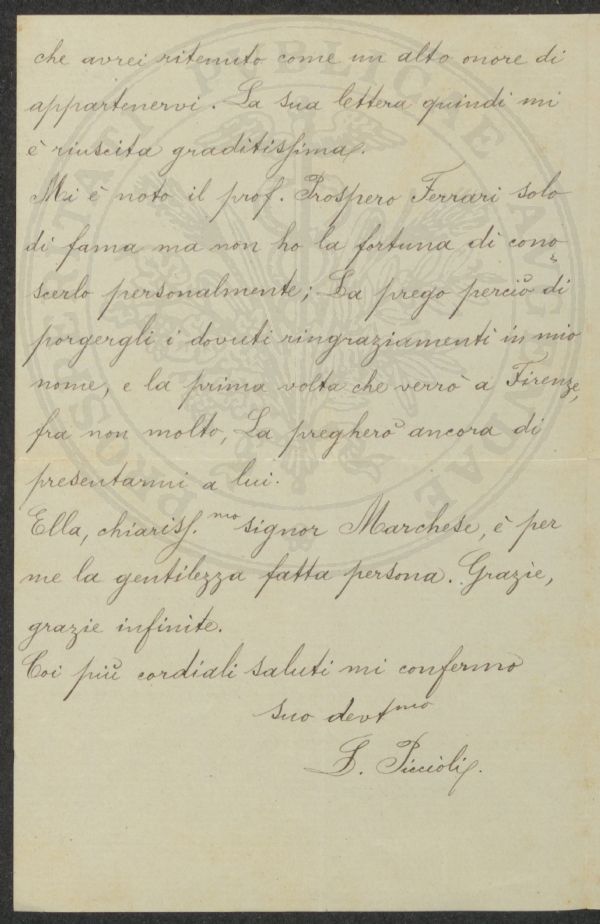 che avrei ritenuto come un alto onore di
appartenervi. La sua lettera quindi mi
è riuscita graditissima.
Mi è noto il prof. Prospero Ferrari solo
di fama ma non ho la fortuna di cono=
scerlo personalmente; La prego perciò di
porgergli i dovuti ringraziamenti in mio
nome, e la prima volta che verrò a Firenze,
fra non molto, La pregherò ancora di
presentarmi a lui.
Ella, chiariss.mo signor Marchese, è per
me la gentilezza fatta persona. Grazie,
grazie infinite.
Coi più cordiali saluti mi confermo
suo devtmo
L. Piccioli.
PROSPERITATI PUBLICAE AUGENDAE